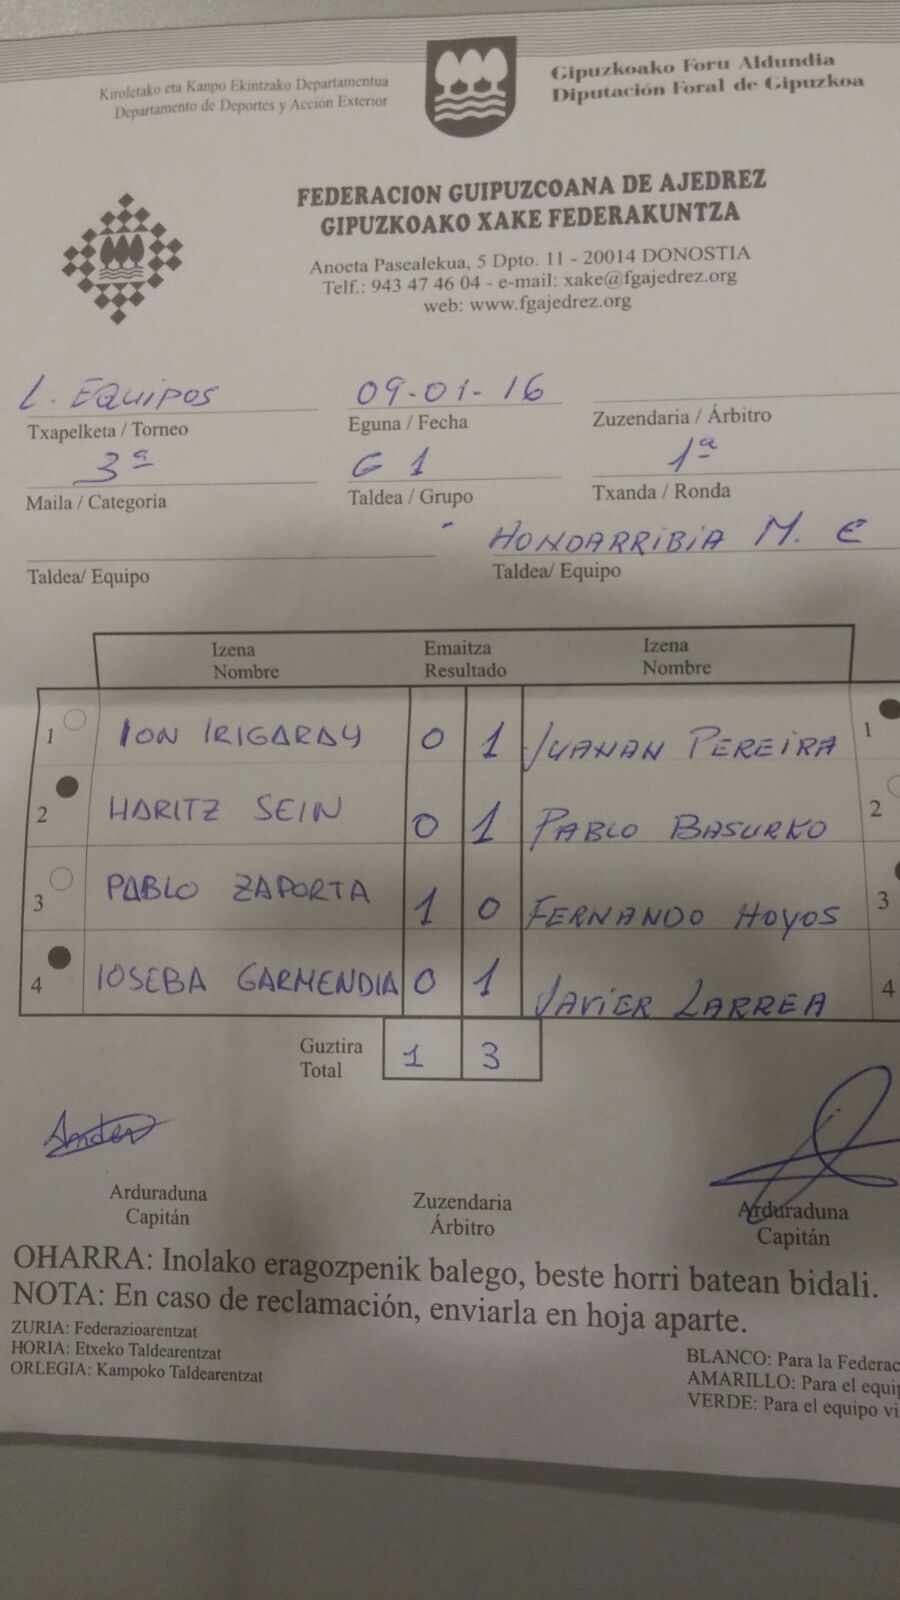 Kiroletako eta Kanpo Ekintzako Departamentua
Departamento de Deportes y Acción Exterior
Gipuzkoako Foru Aldundia
Diputación Foral de Gipuzkoa
FEDERACION GUIPUZCOANA DE AJEDREZ
GIPUZKOAKO XAKE FEDERAKUNTZA
Anoeta Pasealekua, 5 Dpto. 11 - 20014 DONOSTIA
Telf.: 943 47 46 04 - e-mail: xake@fgajedrez.org
web: www.fgajedrez.org
L. EQUIPOS 09-01-16
Txapelketa / Torneo Eguna / Fecha Zuzendaria / Árbitro
3ª G 1 1ª
Maila / Categoría Taldea / Grupo Txanda / Ronda
HONDARRIBIA M. C
Taldea/ Equipo Taldea/ Equipo
Izena Emaitza Izena
Nombre Resultado Nombre
1 ION IRIGARAY 0 1 JUANAN PEREIRA 1
2 HARITZ SEIN 0 1 PABLO BASURKO 2
3 PABLO ZAPORTA 1 0 FERNANDO HOYOS 3
4 IOSEBA GARMENDIA 0 1 JAVIER LARREA 4
Guztira
Total 1 3
Arduraduna Zuzendaria Arduraduna
Capitán Árbitro Capitán
OHARRA: Inolako eragozpenik balego, beste horri batean bidali.
NOTA: En caso de reclamación, enviarla en hoja aparte.
ZURIA: Federazioarentzat
HORIA: Etxeko Taldearentzat
ORLEGIA: Kampoko Taldearentzat
BLANCO: Para la Federac
AMARILLO: Para el equip
VERDE: Para el equipo vi